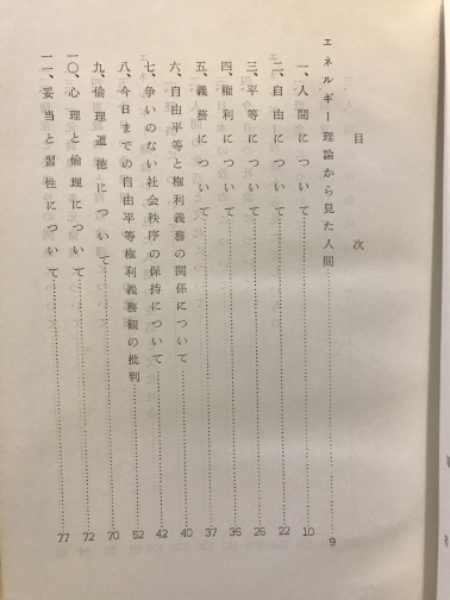 目次
エネルギー理論から見た人間……9
一、人間について……10
二、自由について……22
三、平等について……26
四、権利について……35
五、義務について……37
六、自由平等と権利義務の関係について……40
七、争いのない社会秩序の保持について……42
八、今日までの自由平等権利義務観の批判……52
九、倫理道徳について……70
一〇、心理と倫理について……72
一一、妥当と習性について……77